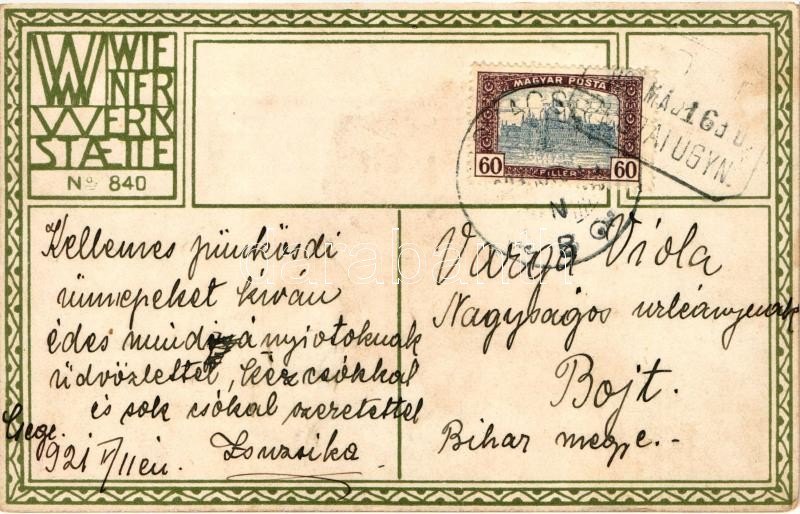 WIE
NER
WERK
STÆTTE
No 840
MAGYAR POSTA
60 60
FILLÉR
MÁJ 16
Kellemes pünkösdi
ünnepeket kíván
édes mindnyájotoknak
üdvözlettel, kézcsókkal
és sok csókal szeretettel
Zsuzsika
Csege.
921 V/11én.
Varga Viola
Nagyságos urleánynak
Bojt.
Bihar megye.-
darabanth